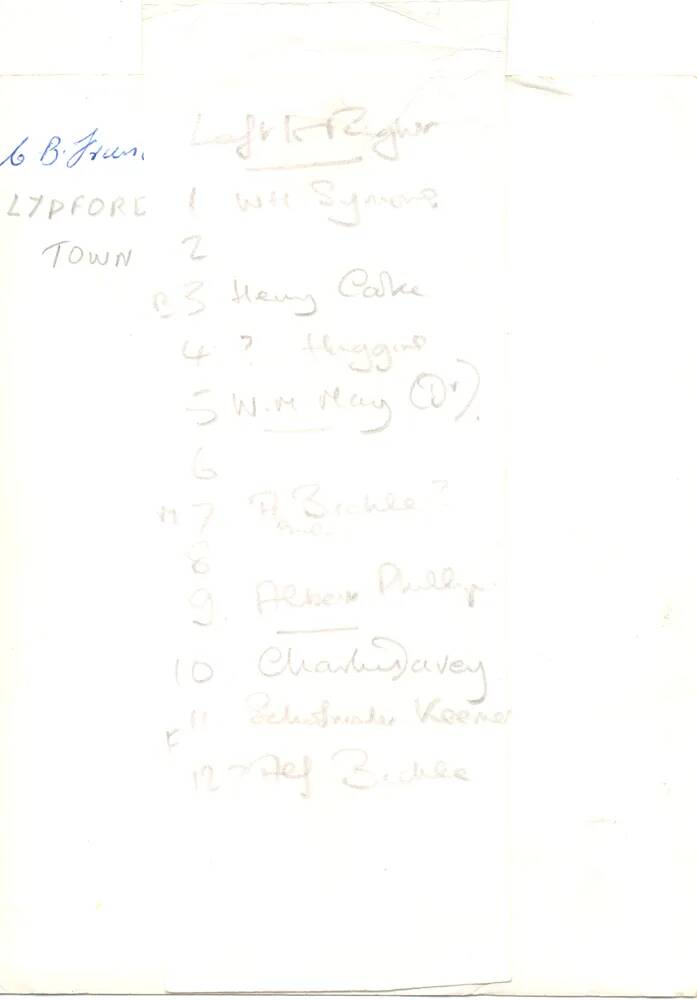 Left to Right
B. Fran
LYDFORD
TOWN
1 WH Symons
2
3 Henry Cake
4 ? Huggins
5 W.H May (Dr).
6
M 7 A Bickle ?
8
9. Albert Phillip
10 Charlie Davey
11 Schoolmaster Keener
12 ? Alf Bickle